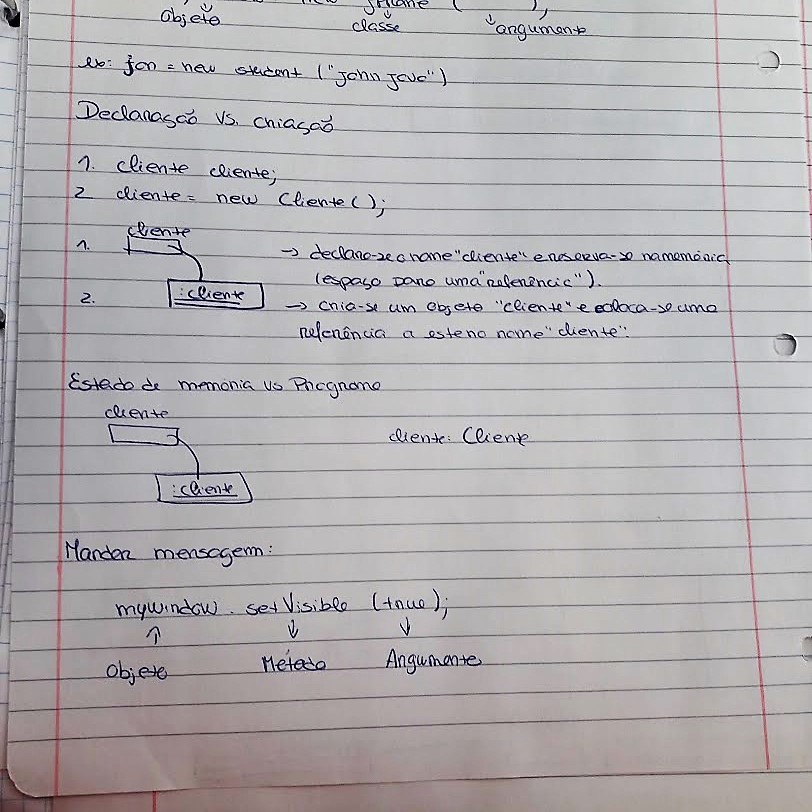 new JFrame ( );
objeto classe argumento
ex: jon = new student ("john java")
Declaração vs. criação
1. cliente cliente;
2 cliente = new Cliente();
cliente
1. → declara-se o nome "cliente" e reserva-se na memória
(espaço para uma "referência").
2. :cliente → cria-se um objeto "cliente" e coloca-se uma
referência a este no nome "cliente".
Estado de memória vs Programa
cliente
cliente: Cliente
:cliente
Mandar mensagem:
mywindow . setVisible (true);
Objeto Método Argumento